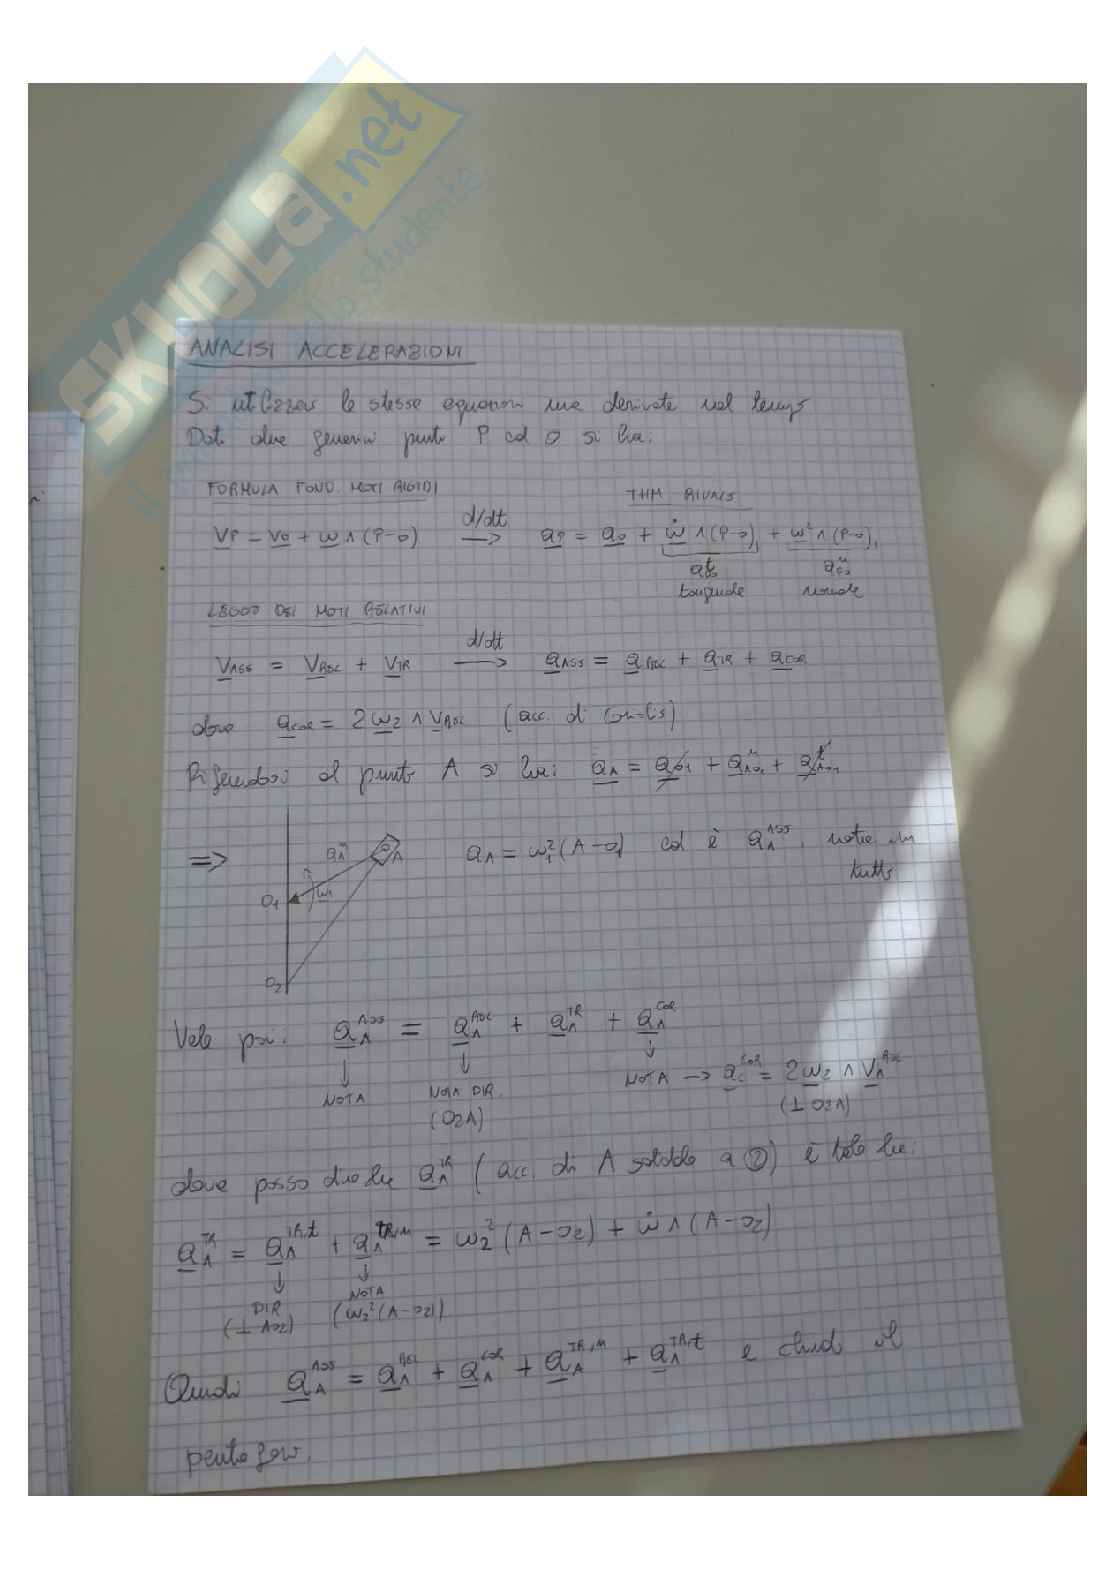 SKUOLA.net
ANALISI ACCELERAZIONI
Si utilizzano le stesse equazioni ma derivate nel tempo
Dati due generici punti P ed O si ha:
FORMULA FOND. MOTI RIGIDI
THM RIVALS
VP = VO + ω ∧ (P-O) d/dt → aP = aO + ω̇ ∧ (P-O) + ω² ∧ (P-O)
tangenziale normale
LEGGE DEI MOTI RELATIVI
VASS = VREL + VTR d/dt → aASS = aREL + aTR + aCOR
dove aCOR = 2ω2 ∧ VREL (acc. di Coriolis)
Riferendosi al punto A si ha: aA = aO1 + aⁿAO1 + aᵗAO1
⇒ aⁿA A aA = ω1²(A-O1) ed è aA^ASS, nota in
tutto
O1 ω1
O2
Vale poi: aA^ASS = aA^REL + aA^TR + aA^COR
NOTA NOTA DIR. (O2A) NOTA → aC^COR = 2ω2 ∧ VA^REL
(⊥ O2A)
dove posso dire che aA^TR (acc. di A solidale a ②) è tale che:
aA^TR = aA^TR,t + aA^TR,n = ω2²(A-O2) + ω̇ ∧ (A-O2)
DIR (⊥ AO2) NOTA (ω2²(A-O2))
Quindi aA^ASS = aA^REL + aA^COR + aA^TR,n + aA^TR,t e chiudi il
pentagono.